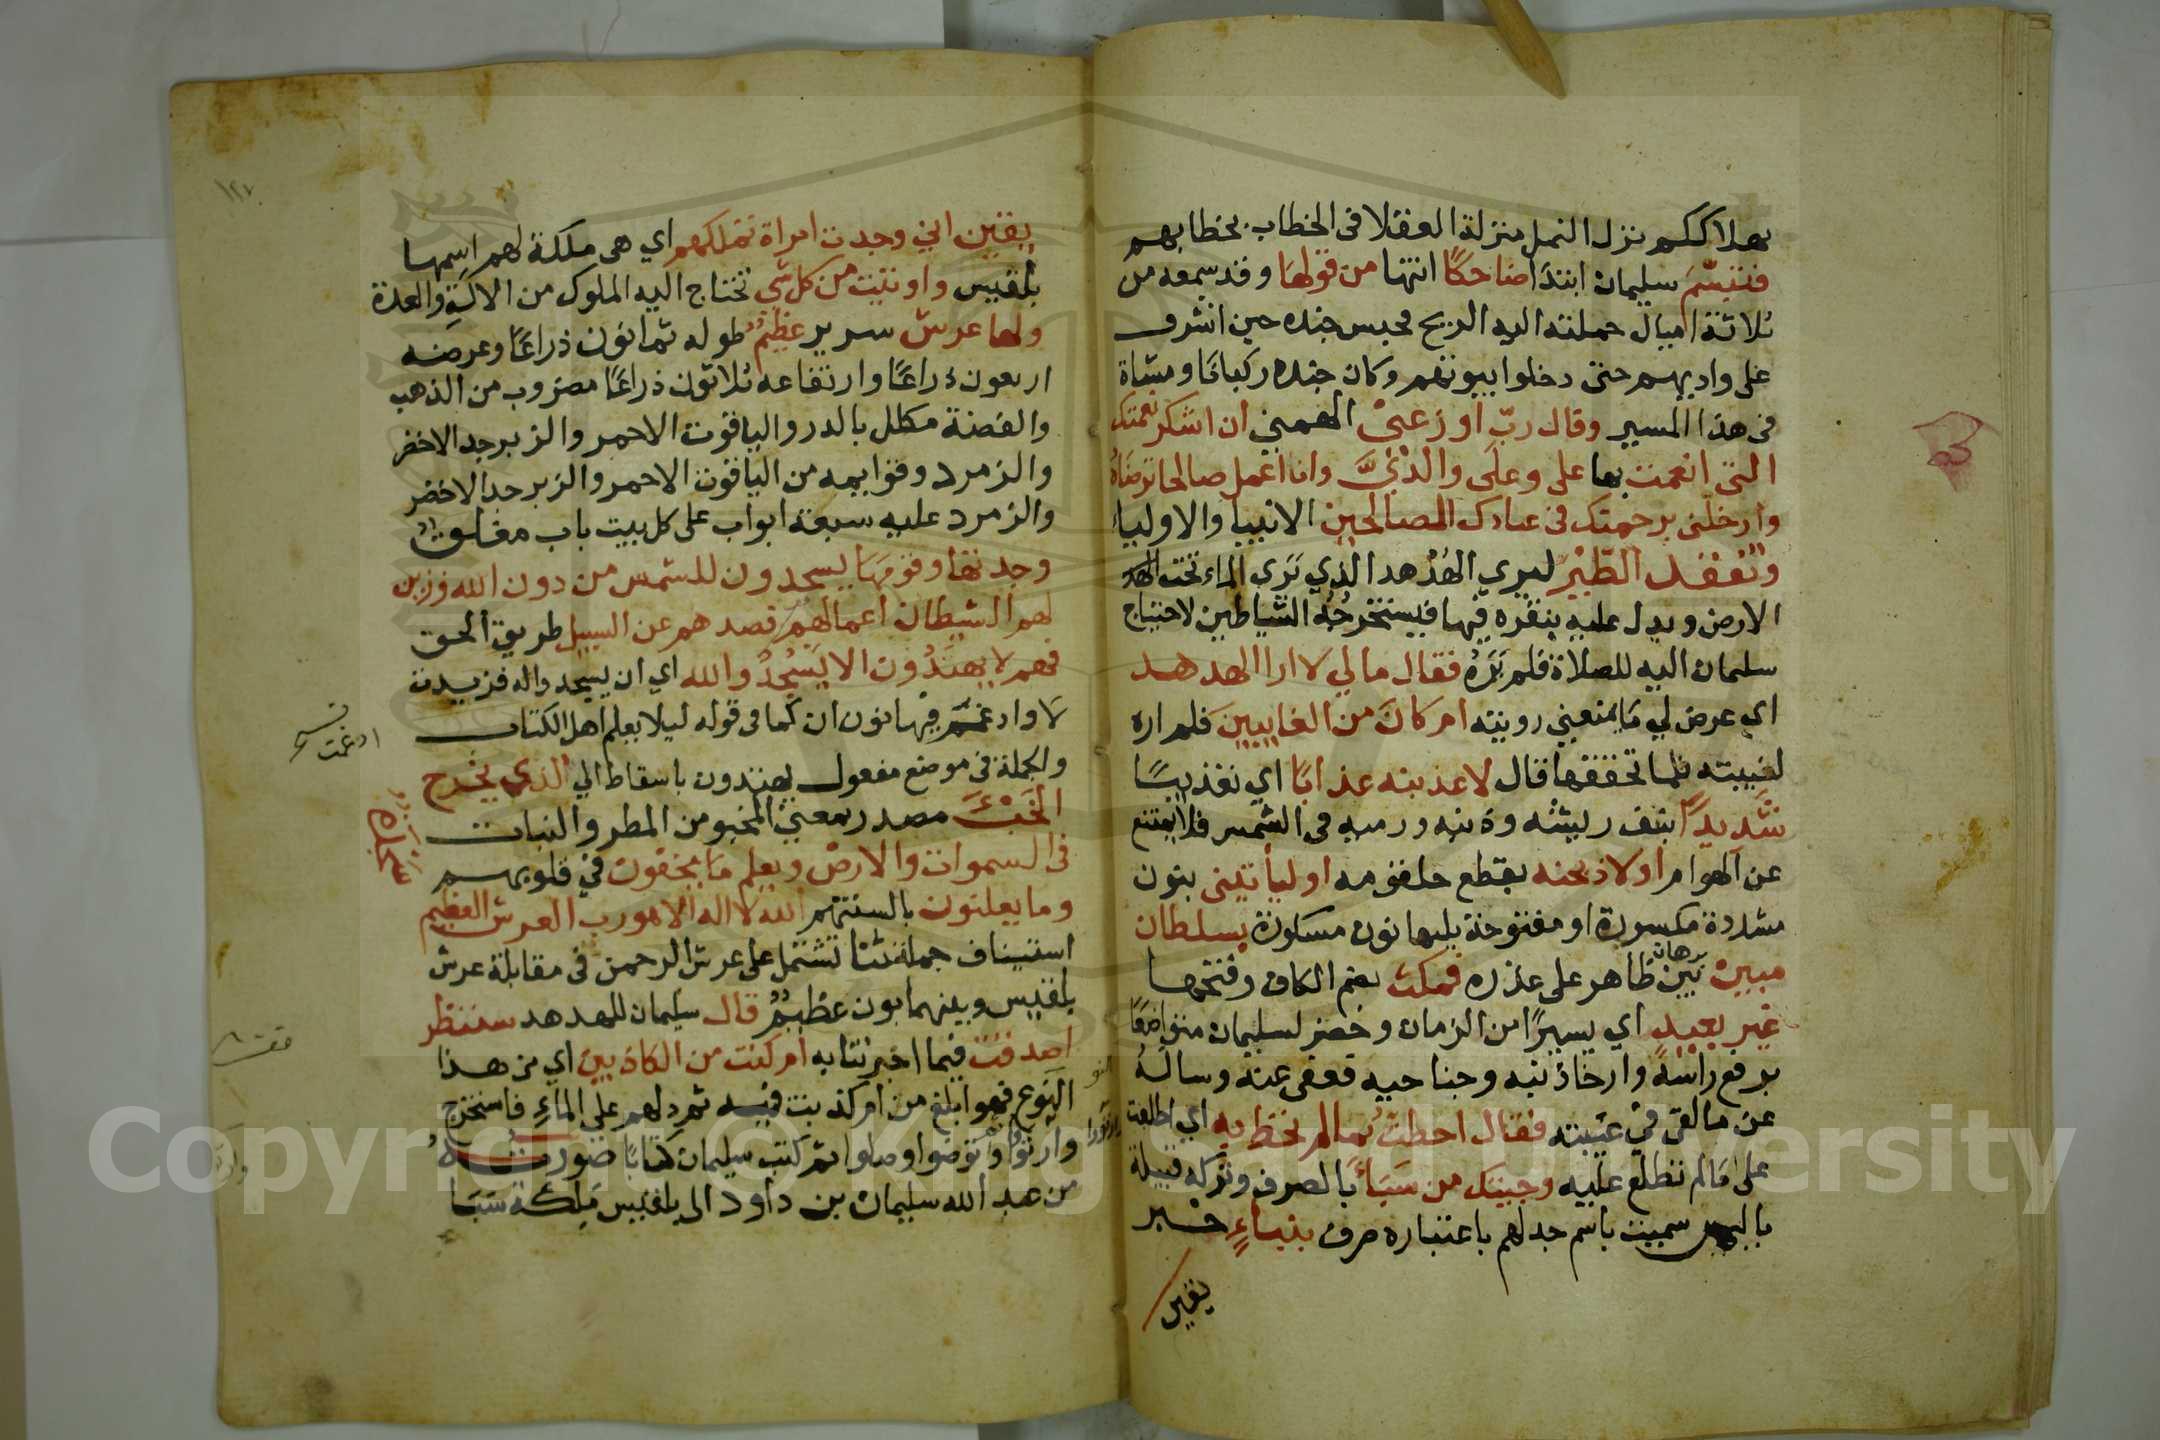 بهلاككم نزل النمل منزلة العقلا فى الخطاب بخطابهم
فتبسّم سليمان ابتدًا ضاحكًا انتها من قولها وقد سمعه من
ثلاثة اميال حملته اليه الريح فحبس جنده حين اشرف
على واديهم حتى دخلوا بيوتهم وكان جنده ركبانا ومشاة
فى هذا المسير وقال ربّ اوزعنى الهمني ان اشكر نعمتك
التى انعمت بها على وعلى والديَّ وان اعمل صالحا ترضاه
وادخلنى برحمتك فى عبادك الصالحين الانبيا والاوليا
وتفقد الطير ليري الهُدْهد الذي يَرَى الماء تحت
الارض ويدل عليه بنقره فيها فيستخرجُه الشياطين لاحتياج
سليمان اليه للصلاة فلم يَرَهُ فقال مالي لا ارا الهدهد
اي عرض لي ما يمنعني رويته ام كان من الغايبين فلم اره
لغيبته فلما تحققها قال لاعذبنه عذابًا اي تعذيبًا
شديدًا بنتف ريشه وذنبه ورميه فى الشمس فلا يمتنع
عن الهوام اولاذبحنه بقطع حلقومه اوليأتينى بنون
مشددة مكسورة او مفتوحة يليها نون مكسورة بسلطان
مبين برهان بَيّن ظاهر على عذره فمكث بضم الكاف وفتحها
غير بعيد اي يسيرًا من الزمان وحضر لسليمان متواضعًا
برفع راسه وارخاذنبه وجناحيه فعفى عنه وسالهُ
عن ما لقى فى غيبته فقال احطتُ بمالم تحط به اي اطلعت
على مالم تطلع عليه وجيتك من سَبَأ بالصرف وتركه قبيلة
باليمن سميت باسم جد لهم باعتباره صرف بنباءٍ خبر
يقين
١٢٧
يقين اني وجدت امراة تملكهم اي هى ملكة لهم اسمها
بلقيس واوتيت من كل شي تحتاج اليه الملوك من الالة والعدة
ولها عرش سرير عظيم طوله ثمانون ذراعًا وعرضه
اربعون ذراعًا وارتفاعه ثلاثون ذراعًا مضروب من الذهب
والفضة مكلل بالدر والياقوت الاحمر والزبرجد الاخضر
والزمرد وقوايمه من الياقوت الاحمر والزبرجد الاخضر
والزمرد عليه سبعة ابواب على كل بيت باب مغلوق
وجدتها وقومها يسجدون للشمس من دون الله وزين
لهم الشيطان اعمالهم فصدهم عن السبيل طريق الحق
فهم لا يهتدُون الا يَسْجُدُوا لله اي ان يسجدوا له فزيدت
لا وادغم فيها نون ان كما فى قوله ليلا يعلم اهل الكتاب
ادغمت
والجملة فى موضع مفعول يهتدون باسقاط الي الذي يخرج
الخَبْءَ مصدر بمعنى المخبو من المطر والنبات
سجدة
فى السموات والارض ويعلم ما يخفون في قلوبهم
وما يعلنون بالسنتهم الله لا اله الا هو رب العرش العظيم
استيناف جملة ثنا تشتمل على عرش الرحمن فى مقابلة عرش
بلقيس وبينهما بون عظيم قال سليمان للهدهد سننظر
اصدقت فيما اخبرتنا به ام كنت من الكاذبين اي من هذا
النوع فهو ابلغ من ام كذبت فيه ثم دلهم على الماءِ فاستخرج
وارتوُا وتوضوا وصلوا ثم كتب سليمان كتابًا صورته
من عبد الله سليمان بن داود الى بلقيس ملكة سَبَا